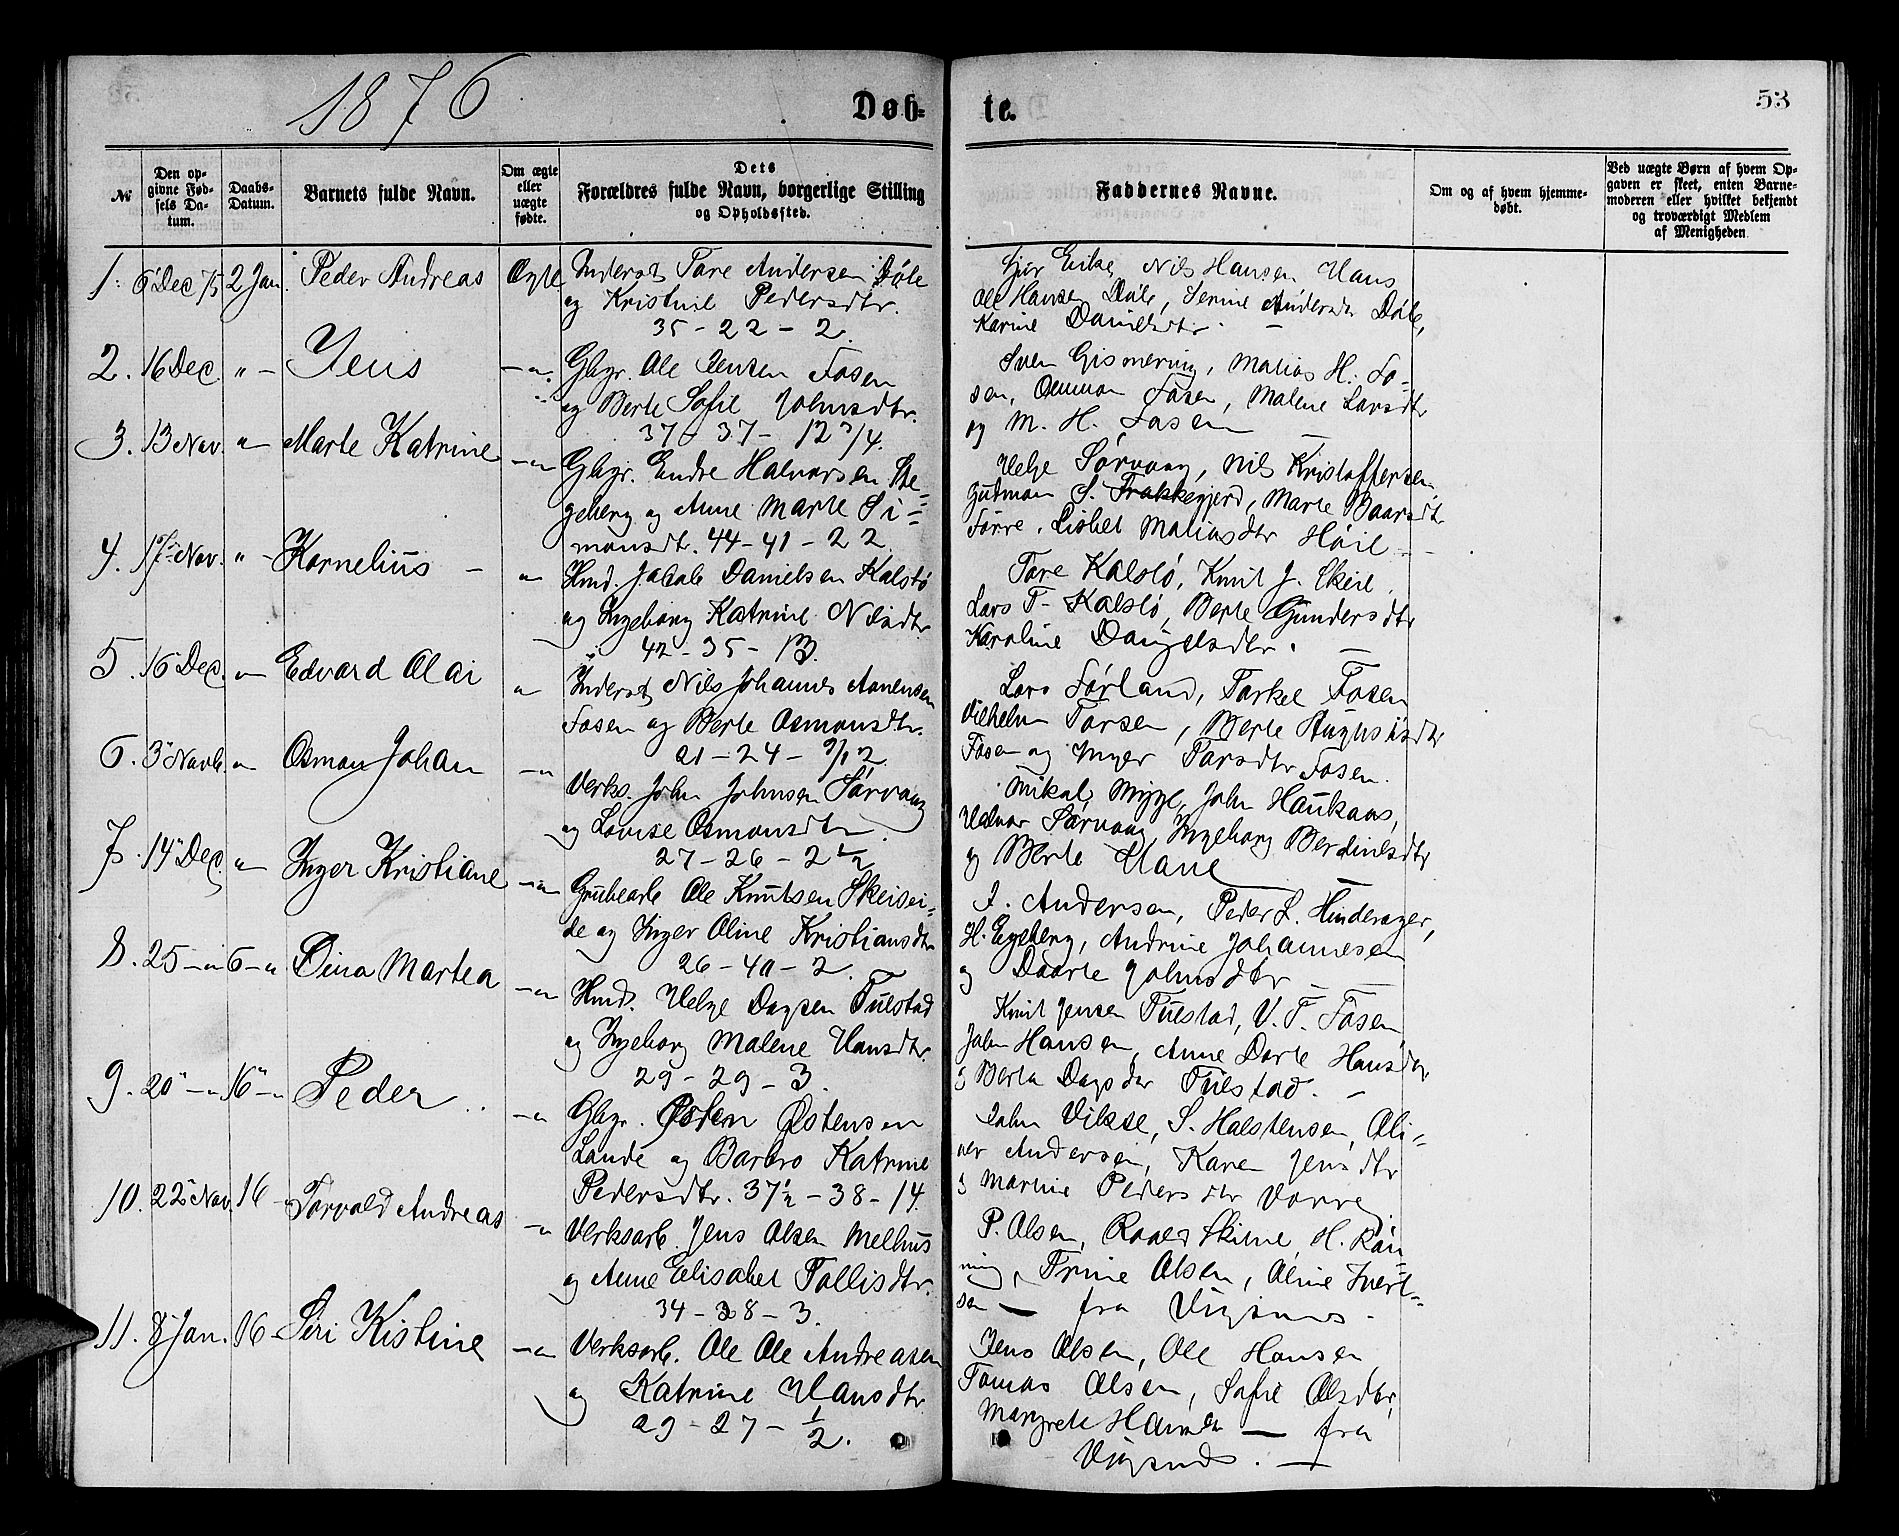 1876
Døb=
te.
53
№
Den op-
givne Fød-
sels Da-
tum.
Daabs-
Datum.
Barnets fulde Navn.
Om ægte
eller
uægte
fødte.
Dets
Forældres fulde Navn, borgerlige Stilling
og Opholdssted.
Faddernes Navne.
Om og af hvem hjemme-
døbt.
Ved uægte Børn af hvem Op-
gaven er skeet, enten Barne-
moderen eller hvilket bekjendt
og troværdigt Medlem
af Menigheden
1. 6 Dec 75 2 Jan. Peder Andreas Ægte Inderst Tore Andersen Døle
og Kristine Pedersdtr.
35-22-2.
Nils Hansen Hans
Ole Hansen Døle, Serine Andersdtr Døle,
Karine Danielsdtr. —
2. 16 Dec. " — Jens — " Gbgr. Ole Jensen Fosen
og Berte Sofie Johnsdtr.
37-37-12 3/4.
Sven Gismervig, Matias H. Fo-
sen, Osmon Fosen, Malene Larsdtr
og M. H. Fosen —
3. 13 Nov. " — Marte Katrine — " Gbgr. Endre Halvorsen Ste-
geberg og Anne Marte Si=
monsdtr. 44-41-22.
Helge Sørvaag, Nils Kristoffersen
Gudmon S. Frakkegjerd, Marte Baarsdtr
Førre, Lisbet Matiasdtr Høie —
4. Nov. " — Kornelius — " Hmd. Jakob Danielsen Kalstø
og Ingeborg Katrine Nilsdtr
42-35-13.
Tore Kalstø, Knut J. Skeie,
Lars T. Kalstø, Berte Gundersdtr
Karoline Danielsdtr. —
5. 16 Dec. " Edvard Olai " Inderst Nils Johannes Aanensen
Fosen og Berte Osmonsdtr.
21-24-9/12.
Lars Førland, Torkel Fosen
Vilhelm Torsen, Berte
Fosen og Inger Torsdtr Fosen.
6. 3 Novb. " Osmon Johan — " Verks. John Johnsen Sørvaag
og Lovise Osmonsdtr.
27-26-2 1/2
Mikal Myge, John Haukaas,
Halvor Sørvaag, Ingeborg Berdinesdtr
og Berte Hane —
7. 14 Dec. " Inger Kristiane — " Grubearb Ole Knutsen Skeisei=
de og Inger Oline Kristiansdtr
26-40-2.
J. Andersen, Peder L. Hinderager,
H. Egeberg, Andrine Johannesen
og Daarte Johnsdtr —
8. 25 — " 6 — " Dina Martea — " Hmd. Helge Dagsen Tuestad
og Ingeborg Malene Hansdtr.
29-29-3.
Knut Jensen Tuestad, V. T. Fosen
John Hansen, Anne Dorte Hansdtr
& Berta Dagsdtr Tuestad. —
9. 20 — " 16 — " Peder — " Gbgr. Østen Østensen
Lande og Barbro Katrine
Pedersdtr. 37 1/2 -38-14.
John Vikse, S. Halstensen, Oli=
ver Andersen, Karen Jensdtr
& Martine Pedersdtr Vorre.
10. 22 Nov. 16 — Torvald Andreas — " Verksarb. Jens Olsen Melhus
og Anne Elisabet Tollisdtr.
34-38-3.
P. Olsen, Roald Skime, H. Røn=
ning, Trine Olsen, Oline Ivert=
sen — fra Vigsnes —
11. 8 Jan. 16 — Siri Kistine — " Verksarb. Ole Ole Andreasen
og Katrine Hansdtr
29-27-1/2.
Jens Olsen, Ole Hansen
Tomas Olsen, Sofie Olsdtr,
Margrete Hansen — fra
Vigsnes. —